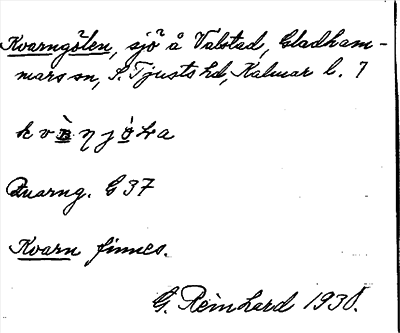 Kvarngölen, sjö å Valstad, Gladham-
mars sn, S. Tjusts hd, Kalmar l. 7
Quarng. G 37
Kvarn finnes.
G. Reinhard 1930.